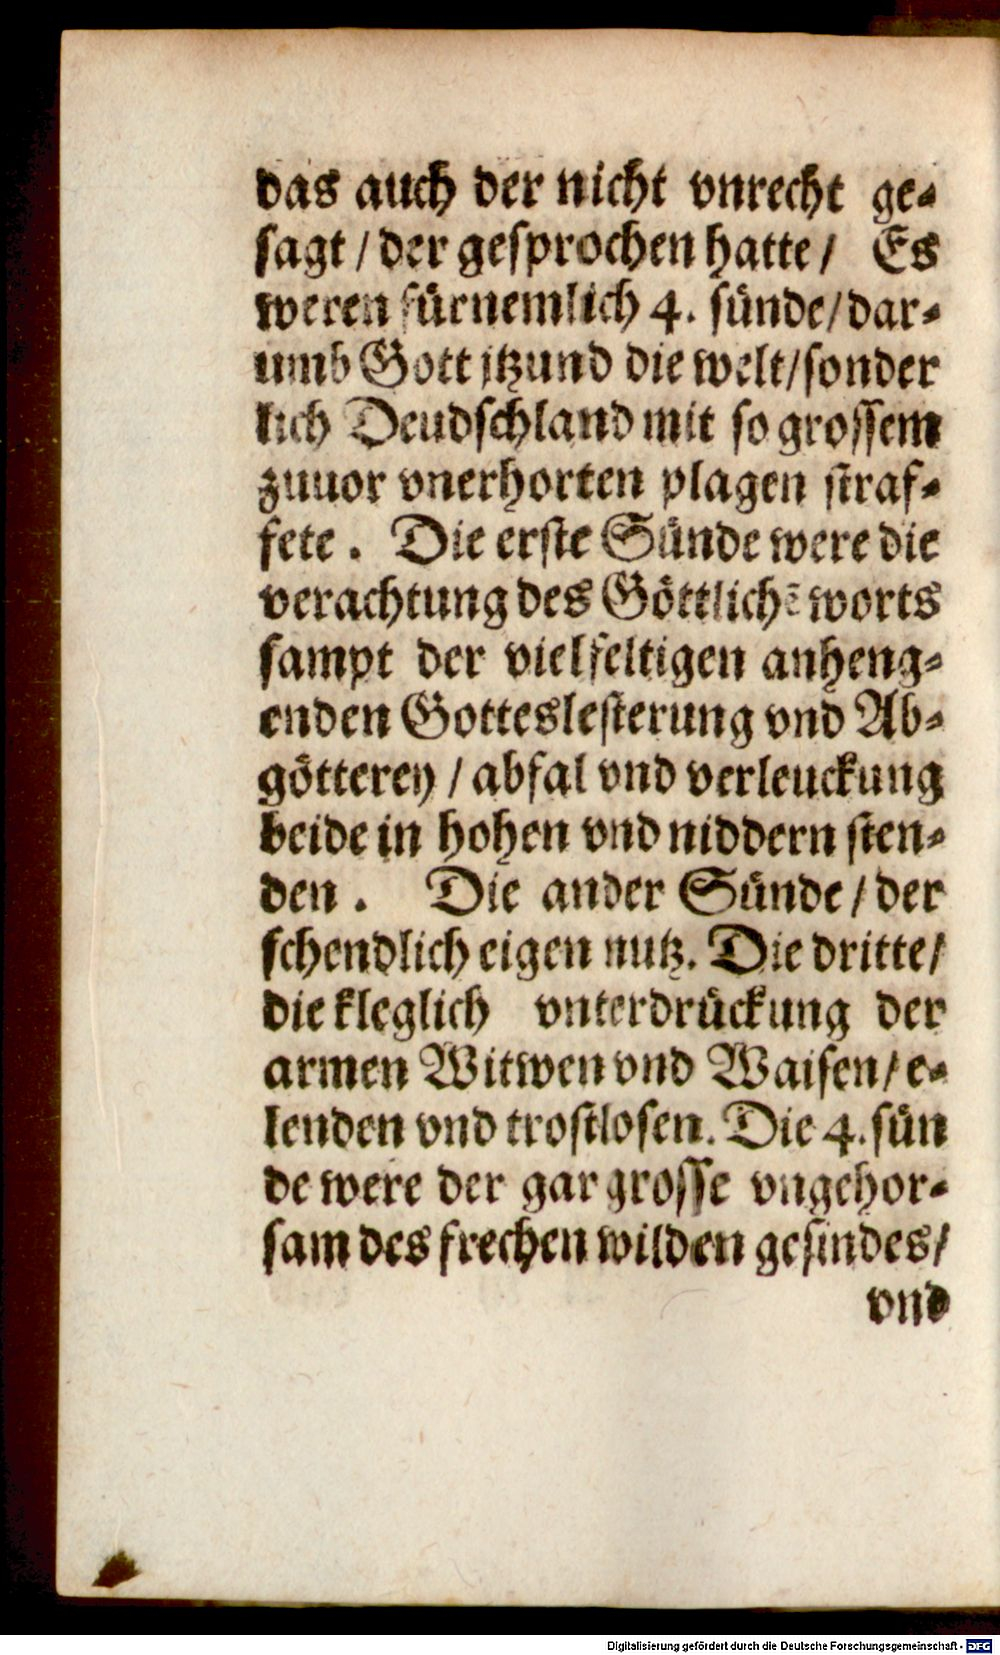 das auch der nicht vnrecht ge-
sagt / der gesprochen hatte / Es
weren fürnemlich 4. sünde / dar-
umb Gott itzund die welt / sonder
lich Deudschland mit so grossem
zuuor vnerhorten plagen straf-
fete . Die erste Sünde were die
verachtung des Göttlichē worts
sampt der vielfeltigen anheng-
enden Gotteslesterung vnd Ab-
götterey / abfal vnd verleuckung
beide in hohen vnd niddern sten-
den . Die ander Sünde / der
schendlich eigen nutz. Die dritte /
die kleglich vnterdrückung der
armen Witwen vnd Waisen / e-
lenden vnd trostlosen. Die 4. sün
de were der gar grosse vngehor-
sam des frechen wilden gesindes /
vnd
Digitalisierung gefördert durch die Deutsche Forschungsgemeinschaft - DFG